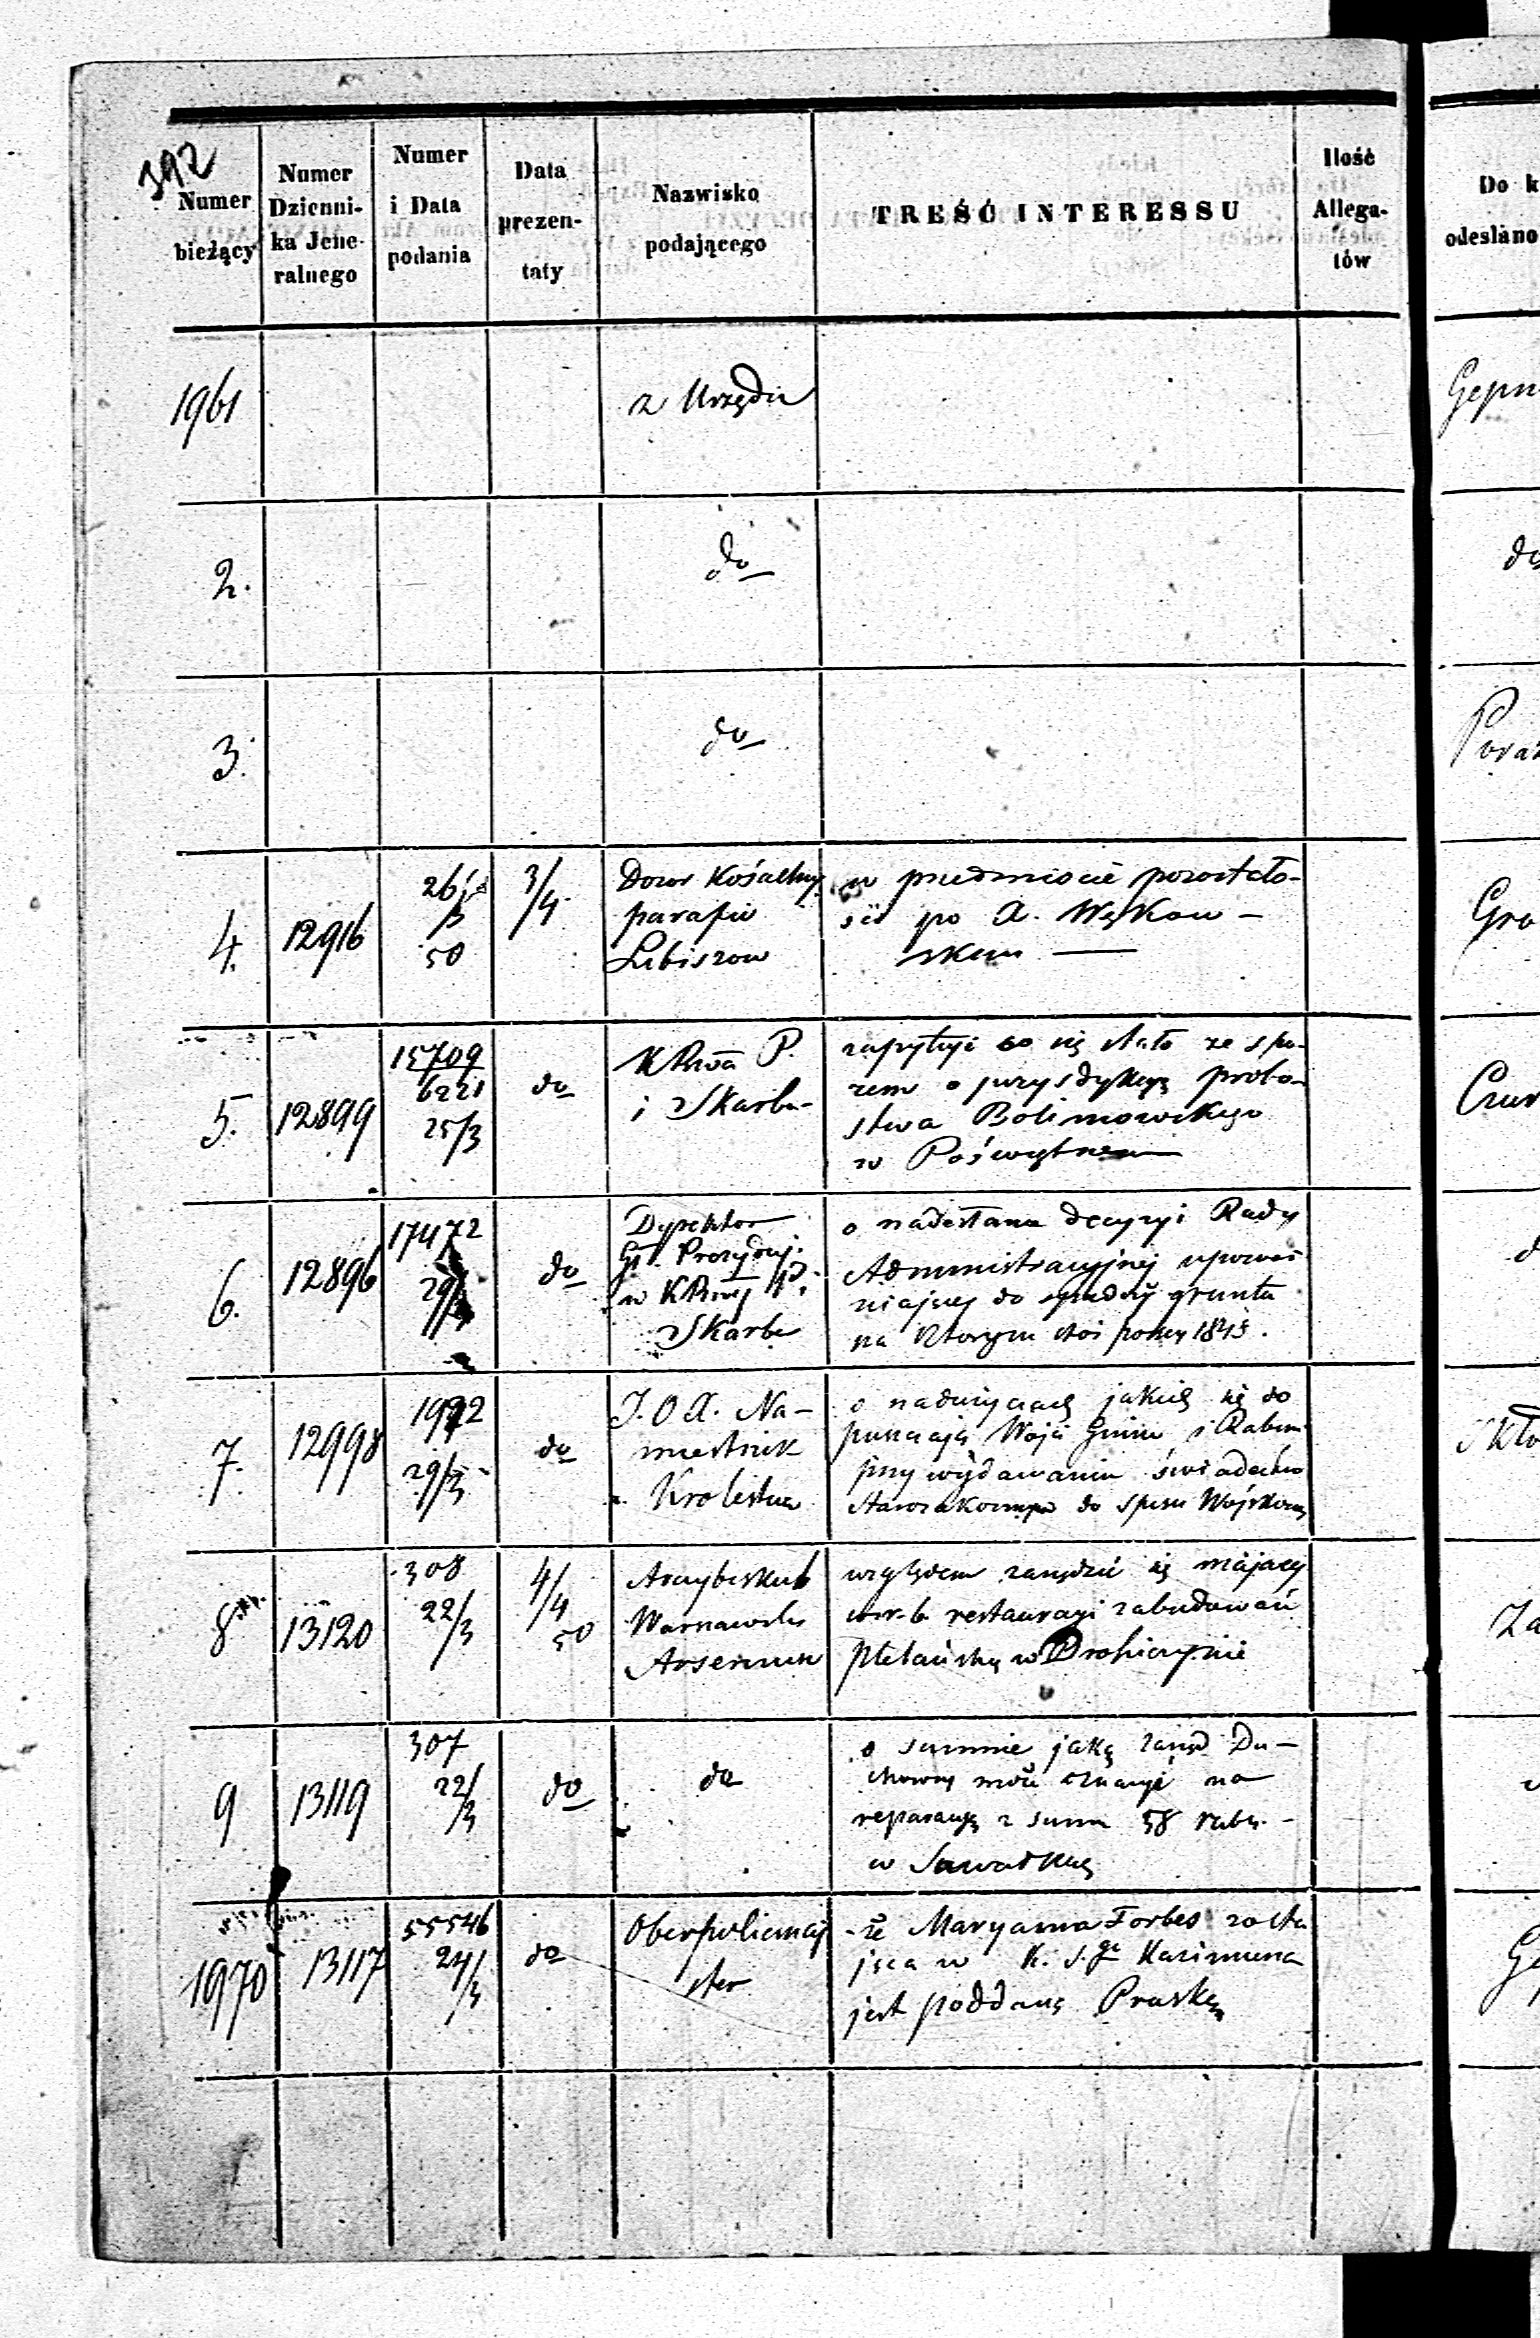 392
Numer bieżący
Numer Dzienni- ka Jene- ralnego
Numer i Data podania
Data prezen- taty
Nazwisko podającego
TREŚĆ INTERESSU
Ilość Allega- tów
Do k
odesłano
1961
z Urzędu
Gępn
2.
do
do
3.
do
4.
12916
26/3
50
3/4
Dozor Kościelny
parafii
Lubiszow
w przedmiocie pozostało-
ści po A. Węskow-
skim
Gro
5.
12899
15709
6221
25/3
do
KRwa P.
i Skarbu
zapytuje co się stało ze spo-
rem o jurysdykcyę probo-
stwa Bolimowskiego
w Poświętnem
Czer
6.
12896
17472
29/3
do
Dyrektor
Gł. Prezyduj.
w KRwej P.
Skarbu
o nadesłanie decyzyi Rady
Administracyjnej upoważ
niającej do sprzedaży gruntu
na którym stoi 1845.
d
7.
12998
1992
29/3
do
J. O X. Na-
miestnik
Krolestwa
o nadużyciach jakich się do
puszczają Wojci Gmin i Rabini
przy wydawaniu świadectw
Starozakonnym do spisu Wojskowego
Skło
8
13120
308
22/3
4/4
50
Arcybiskub
Warszawski
Arseniusz
względem restauracyi zabudowań
plebańskich w Drohiczynie
Za
9
13119
307
22/3
do
do
o summie jaką Zarząd Du-
chowny może na
reparacyę z summ 58 rubs.
w Suwałkach
1970
13117
55546
24/3
do
Oberpolicmaj
ster
że Maryanna Forbes zosta
jąca w K. S.go Kazimierza
jest poddaną Pruską
Gę